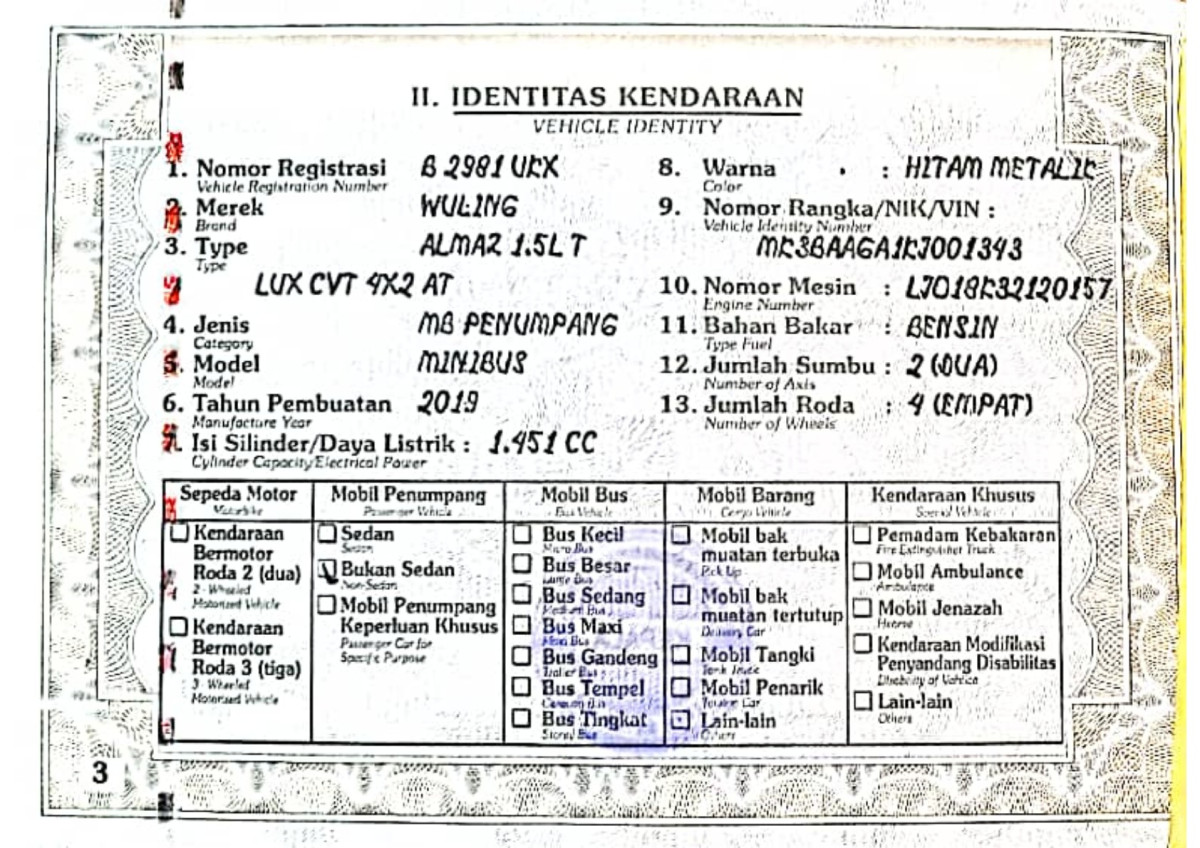 II. IDENTITAS KENDARAAN
VEHICLE IDENTITY
1. Nomor Registrasi B 2981 UKX
Vehicle Registration Number
2. Merek WULING
Brand
3. Type ALMAZ 1.5L T
Type
LUX CVT 4X2 AT
4. Jenis MB PENUMPANG
Category
5. Model MINIBUS
Model
6. Tahun Pembuatan 2019
Manufacture Year
7. Isi Silinder/Daya Listrik : 1.451 CC
Cylinder Capacity/Electrical Power
8. Warna : HITAM METALIK
Color
9. Nomor Rangka/NIK/VIN :
Vehicle Identity Number
MK3BAAGA1KJ001343
10. Nomor Mesin : LJO18K32120157
Engine Number
11. Bahan Bakar : BENSIN
Type Fuel
12. Jumlah Sumbu : 2 (DUA)
Number of Axis
13. Jumlah Roda : 4 (EMPAT)
Number of Wheels
Sepeda Motor
Motorbike
Kendaraan
Bermotor
Roda 2 (dua)
2 - Wheeled
Motorized Vehicle
Kendaraan
Bermotor
Roda 3 (tiga)
3 - Wheeled
Motorized Vehicle
Mobil Penumpang
Passenger Vehicle
Sedan
Sedan
Bukan Sedan
Non-Sedan
Mobil Penumpang
Keperluan Khusus
Passenger Car for
Specific Purpose
Mobil Bus
Bus Vehicle
Bus Kecil
Micro Bus
Bus Besar
Large Bus
Bus Sedang
Medium Bus
Bus Maxi
Maxi Bus
Bus Gandeng
Bus Tempel
Bus Tingkat
Mobil Barang
Cargo Vehicle
Mobil bak
muatan terbuka
Pick Up
Mobil bak
muatan tertutup
Delivery Car
Mobil Tangki
Tank Truck
Mobil Penarik
Lain-lain
Others
Kendaraan Khusus
Special Vehicle
Pemadam Kebakaran
Fire Extinguisher Truck
Mobil Ambulance
Ambulance
Mobil Jenazah
Hearse
Kendaraan Modifikasi
Penyandang Disabilitas
Disability of Vehicle
Lain-lain
Others
3